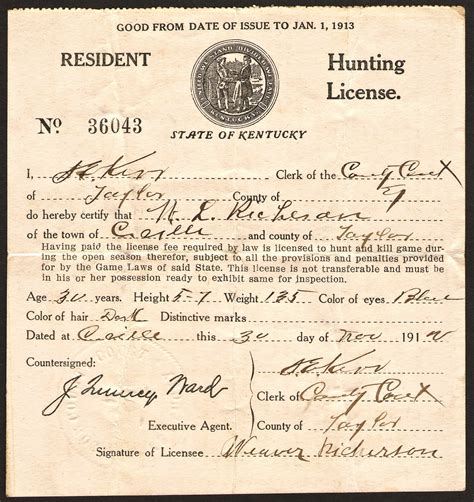 GOOD FROM DATE OF ISSUE TO JAN. 1, 1913
RESIDENT Hunting License.
No. 36043
STATE OF KENTUCKY
I, S E Kerr Clerk of the County Court
of Taylor County of
do hereby certify that W. L. Richeson
of the town of C-ville and county of Taylor
Having paid the license fee required by law is licensed to hunt and kill game dur-
ing the open season therefor, subject to all the provisions and penalties provided
for by the Game Laws of said State. This license is not transferable and must be
in his or her possession ready to exhibit same for inspection.
Age 30 years. Height 5-7 Weight 135 Color of eyes Blue
Color of hair Dark Distinctive marks
Dated at C-ville this 30 day of Nov 1912
Countersigned: S E Kerr
J. Quincy Ward Clerk of County Court
Executive Agent. County of Taylor
Signature of Licensee Weaver Richerson